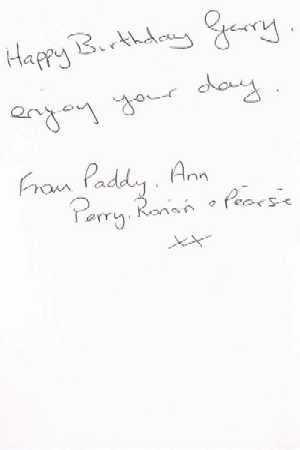 Happy Birthday Gerry.
enjoy your day.
From Paddy, Ann
Perry, Ronan & Pearse
xx